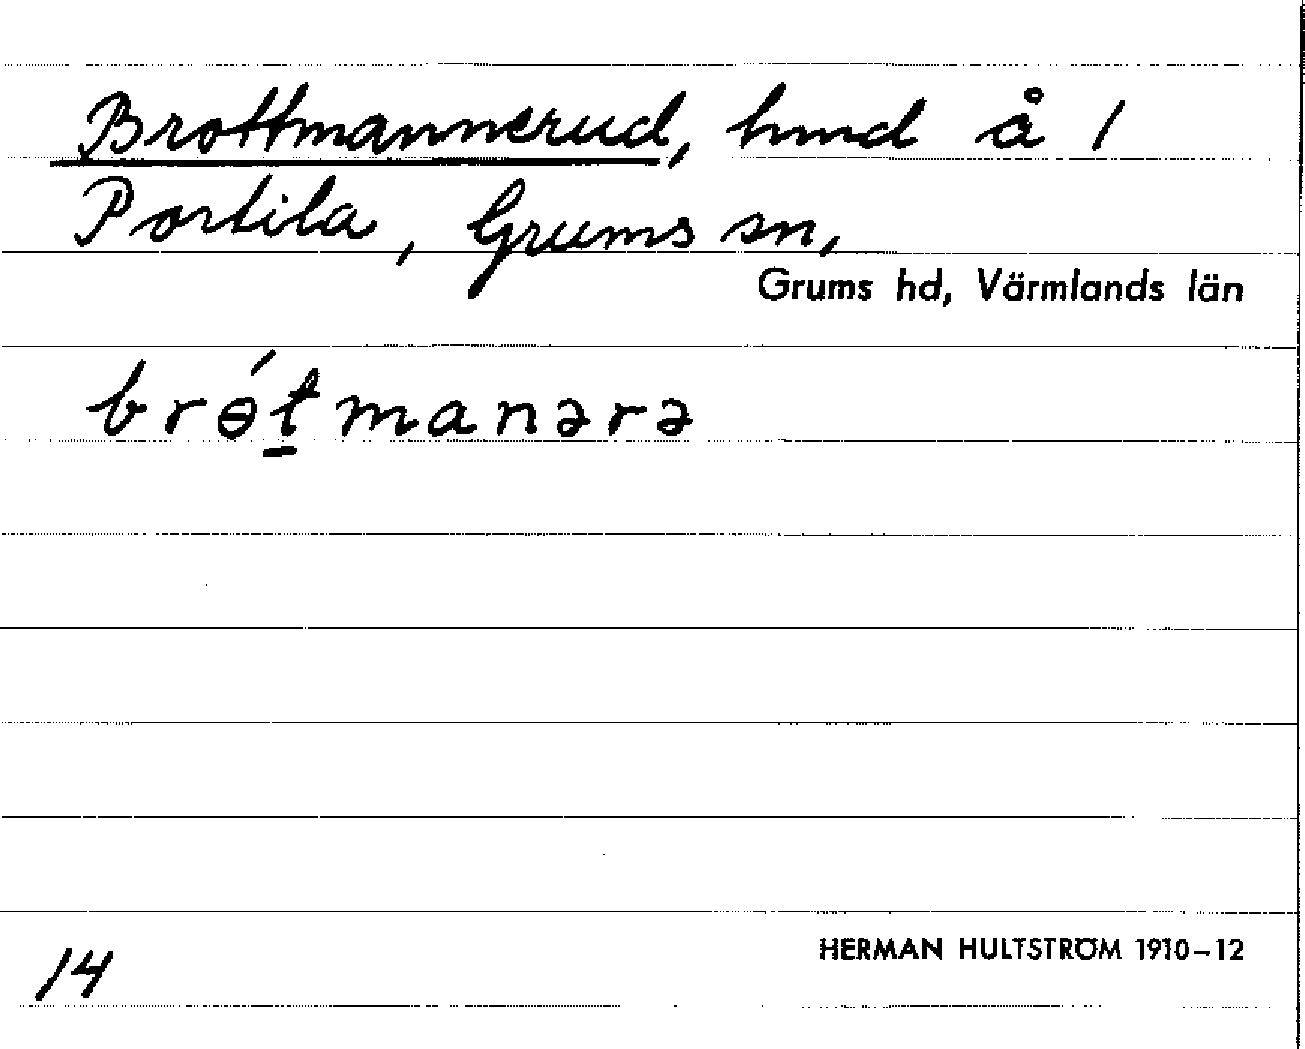 Brottmannerud, hmd å 1
Portila, Grums sn,
Grums hd, Värmlands län
brɵ́t̠manərə
14
HERMAN HULTSTRÖM 1910–12